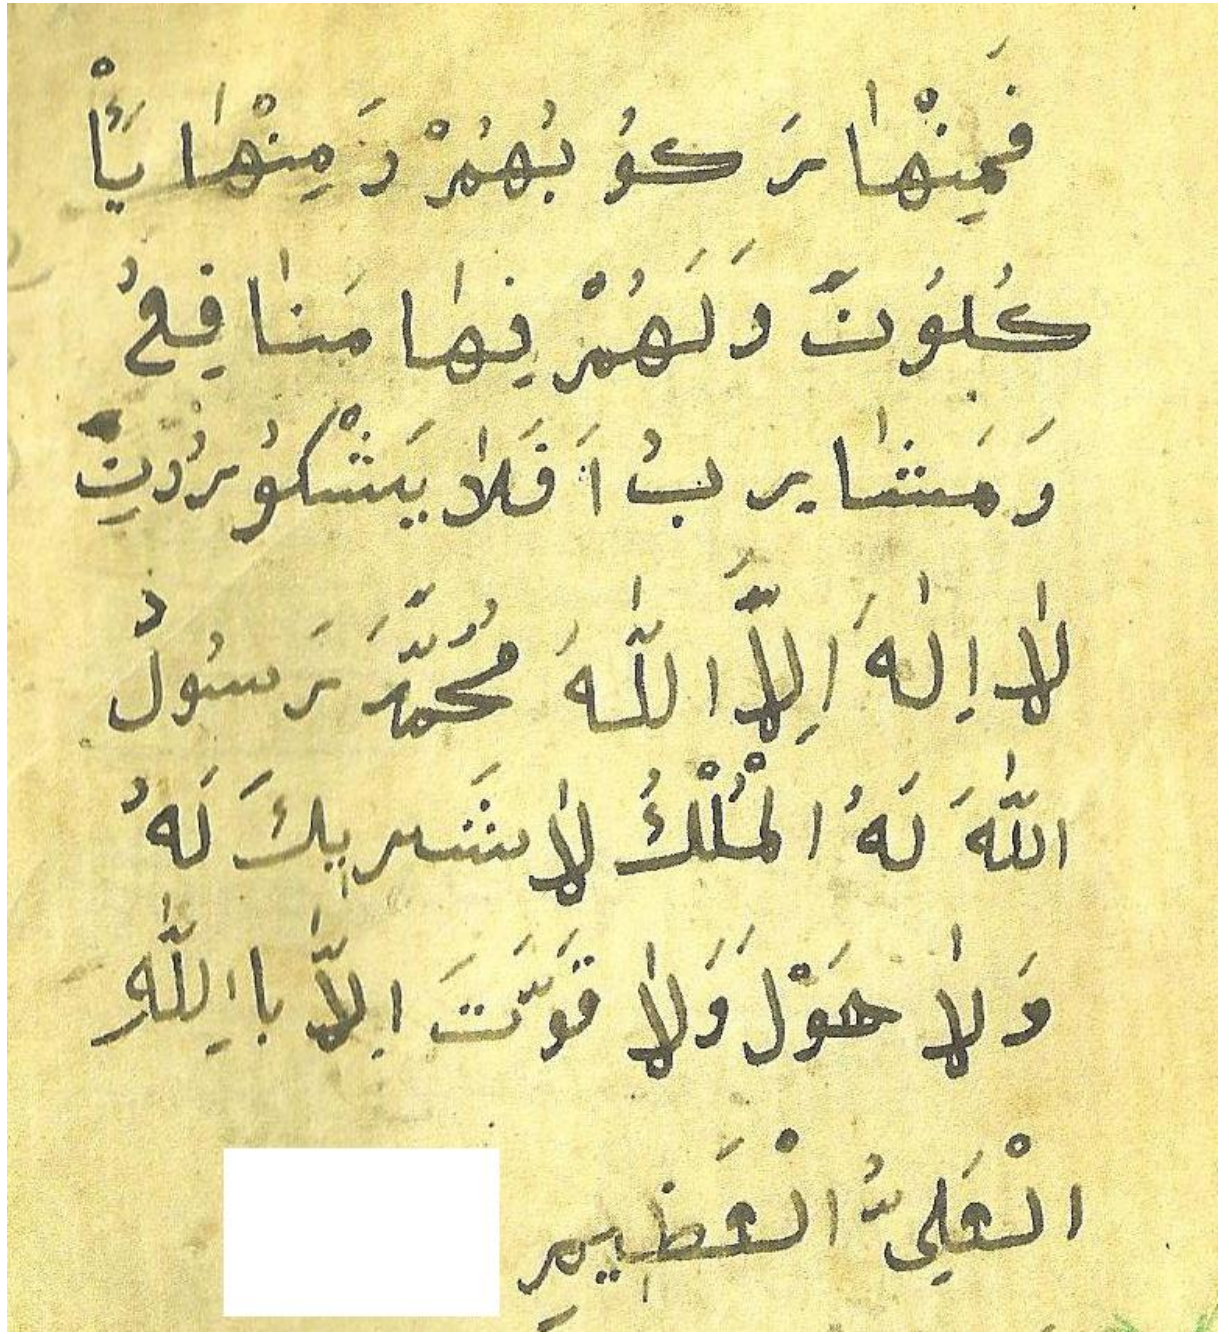 فَمِنْهٰا رَكُو بُهُمْ وَمِنْهٰا يَأْ
كُلُونَ وَلَهُمْ فِيهٰا مَنٰا فِعُ
وَمَشٰا رِبُ اَفَلاٰ يَشْكُورُونَ
لاٰ اِلٰهَ اِلاَّ اللّٰهُ مُحُمَّدَّ رَسُولُ
اللّٰهَ لَهُ الْمُلْكُ لاٰ شَرِيكَ لَهُ
وَلاٰ حَوْلَ وَلاٰ قَوَّتَ اِلاّٰ بااِللّٰهِ
الْعَلِىُّ الْعَظِيمِ